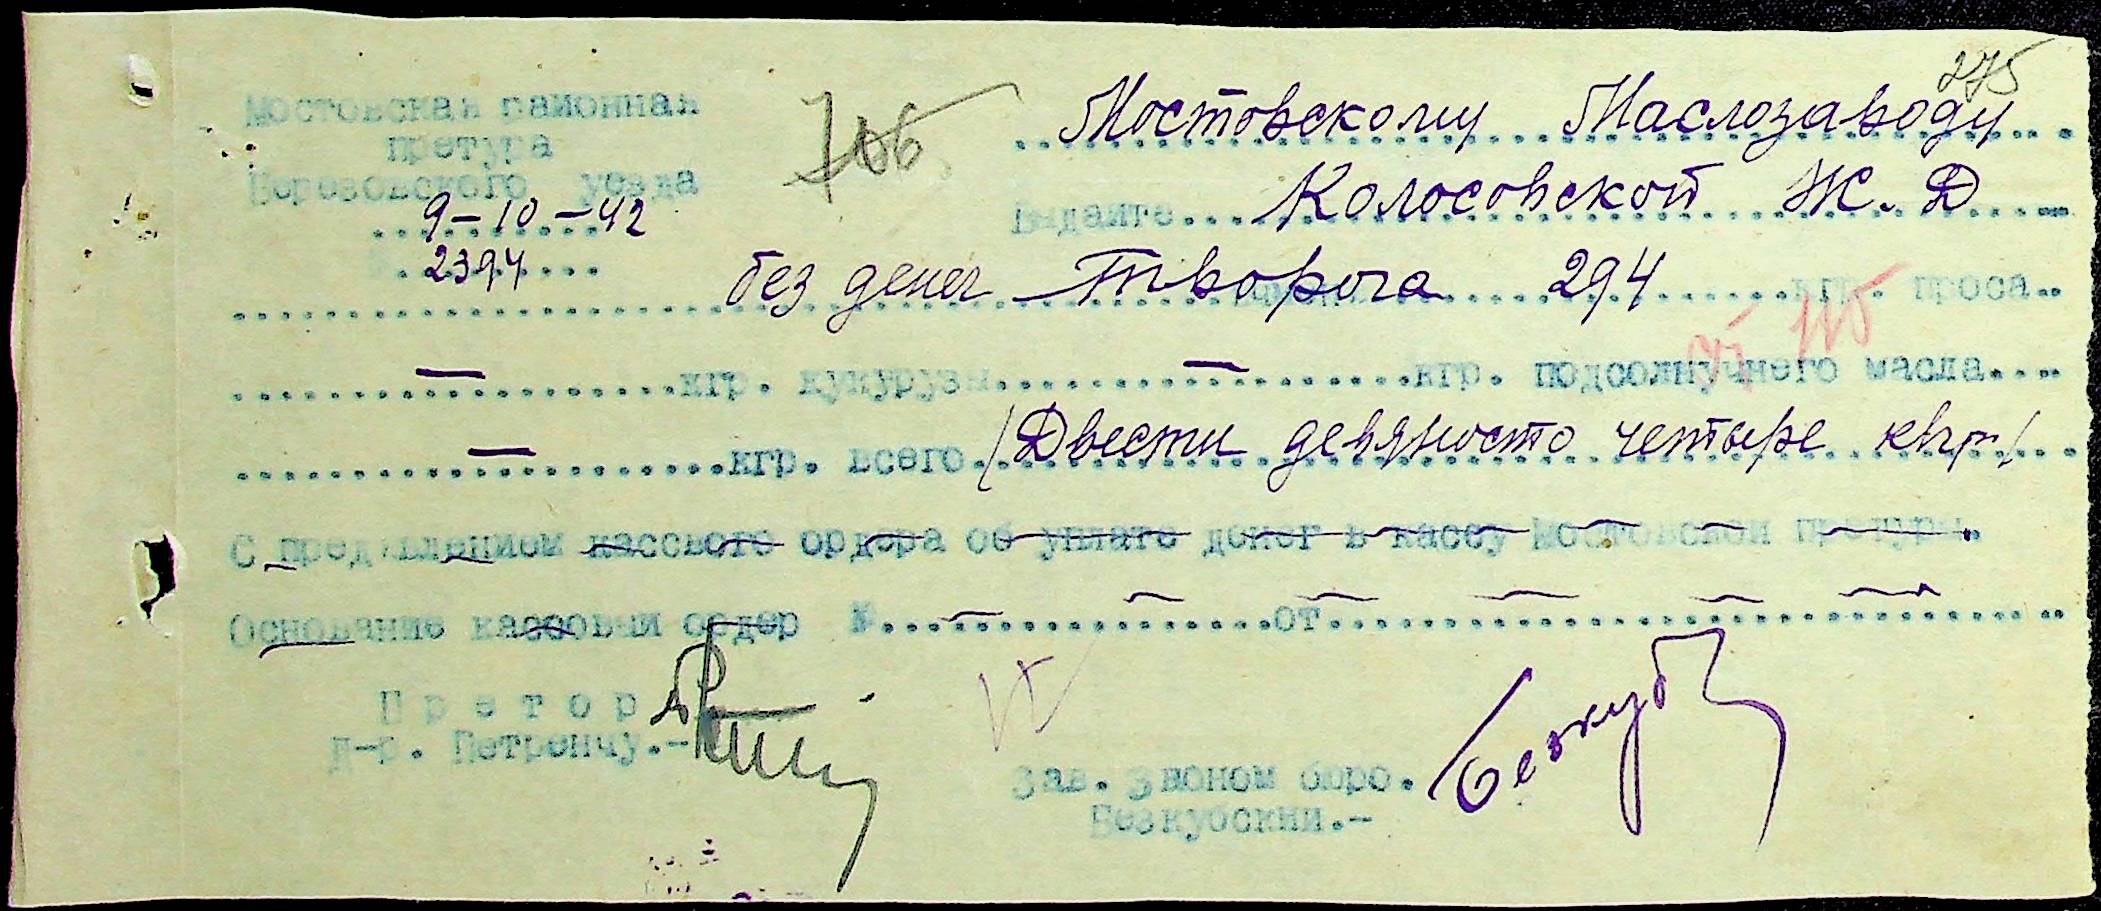 275
Мостовская районная
претура
Березовского уезда
9-10-42
№ 2394
706
Мостовскому Маслозаводу
Выдайте Колосовской Ж. Д
без денег Творога 294 кгр. проса
кгр. кукурузы кгр. подсолнучнего масла
кгр. всего /Двести девяносто четыре клгр/
С предявлением кассвого ордера об уплате денег в кассу Мостовской претуры.
Основание кассовый ордер № от
Претор
Д-р. Петренчу.-
Зав. Эконом бюро.
Безкубский.-